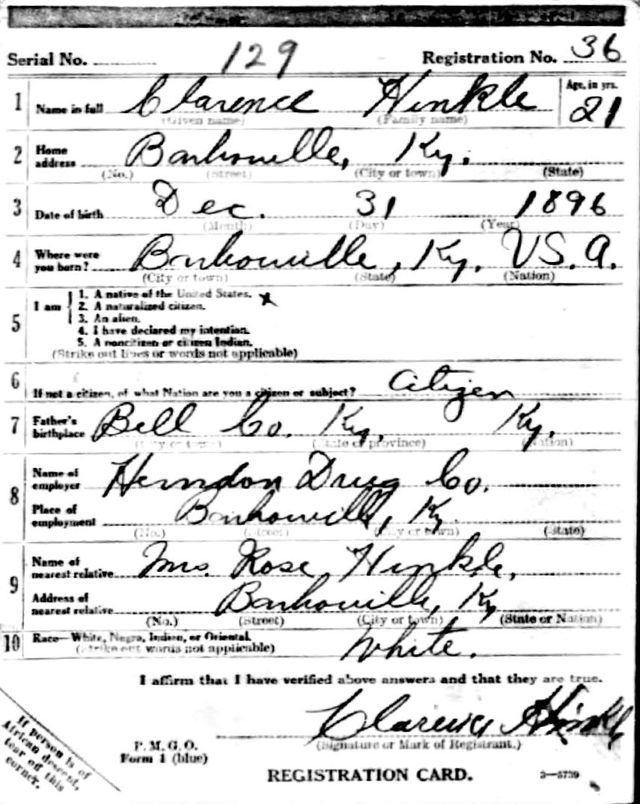 Serial No. 129 Registration No. 36
1 Name in full Clarence Hinkle Age, in yrs. 21
(Given name) (Family name)
2 Home address Barbourville, Ky.
(No.) (Street) (City or town) (State)
3 Date of birth Dec. 31 1896
(Month) (Day) (Year)
4 Where were you born? Barbourville, Ky. U.S.A.
(City or town) (State) (Nation)
5 I am
1. A native of the United States. x
2. A naturalized citizen.
3. An alien.
4. I have declared my intention.
5. A noncitizen or citizen Indian.
(Strike out lines or words not applicable)
6 If not a citizen, of what Nation are you a citizen or subject? Citizen
7 Father's birthplace Bell Co. Ky. Ky.
(City or town) (State or province) (Nation)
8 Name of employer Herndon Drug Co.
Place of employment Barbourville, Ky.
(No.) (Street) (City or town) (State)
9 Name of nearest relative Mrs. Rose Hinkle,
Address of nearest relative Barbourville, Ky
(No.) (Street) (City or town) (State or Nation)
10 Race—White, Negro, Indian, or Oriental. White.
(Strike out words not applicable)
I affirm that I have verified above answers and that they are true.
Clarence Hinkle
(Signature or Mark of Registrant.)
P. M. G. O.
Form 1 (blue)
REGISTRATION CARD. 3—5739
If person is of
African descent,
tear off this
corner.